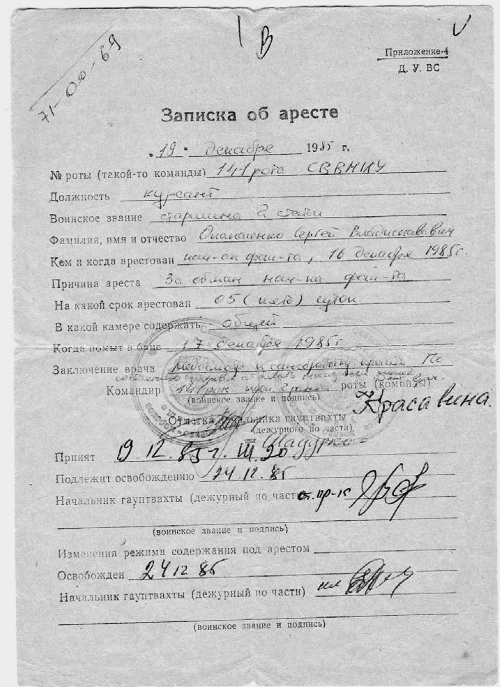 71-00-69
В
Приложение-4
Д. У. ВС
Записка об аресте
„19" декабря 1985 г.
№ роты (такой-то команды) 141 рота СВВМИУ
Должность курсант
Воинское звание старшина 2 статьи
Фамилия, имя и отчество Сергей Владиславович
Кем и когда арестован нач-ом фак-та, 16 декабря 1985г.
Причина ареста За обман нач-ка фак-та
На какой срок арестован 05 (пять) суток
В какой камере содержать общей
Когда помыт в бане 17 декабря 1985г
Заключение врача
Командир роты (команды)
(воинское звание и подпись)
Отметка начальника гауптвахты Красавина.
(дежурного по части)
Принят 19.12.85г.
Подлежит освобождению 24.12.85
Начальник гауптвахты (дежурный по части) ст. пр-к
(воинское звание и подпись)
Изменения режима содержания под арестом
Освобожден 24 12 85
Начальник гауптвахты (дежурный по части)
(воинское звание и подпись)